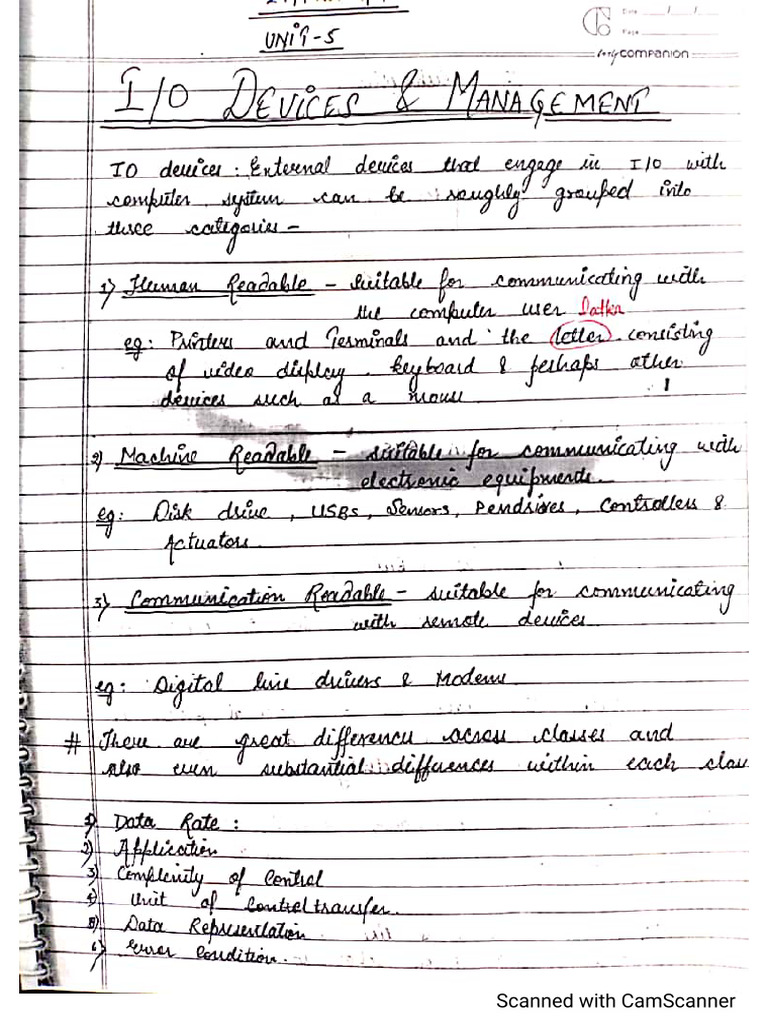 UNIT-5
Date
Page
companion
I/O DEVICES & MANAGEMENT
IO devices: External devices that engage in I/O with
computer system can be roughly grouped into
three categories -
1) Human Readable - suitable for communicating with
the computer user
eg: Printers and Terminals and the letter consisting
of video display. keyboard & perhaps other
devices such as a mouse
2) Machine Readable - suitable for communicating with
electronic equipments.
eg: Disk drive, USBs, Sensors, Pendrives, Controllers &
Actuators.
3) Communication Readable - suitable for communicating
with remote devices
eg: Digital line drivers & Modems
# There are great differences across classes and
also even substantial differences within each class
1) Data Rate:
2) Application
3) Complexity of Control
4) Unit of Control transfer.
5) Data Representation
6) Error Condition.
Scanned with CamScanner